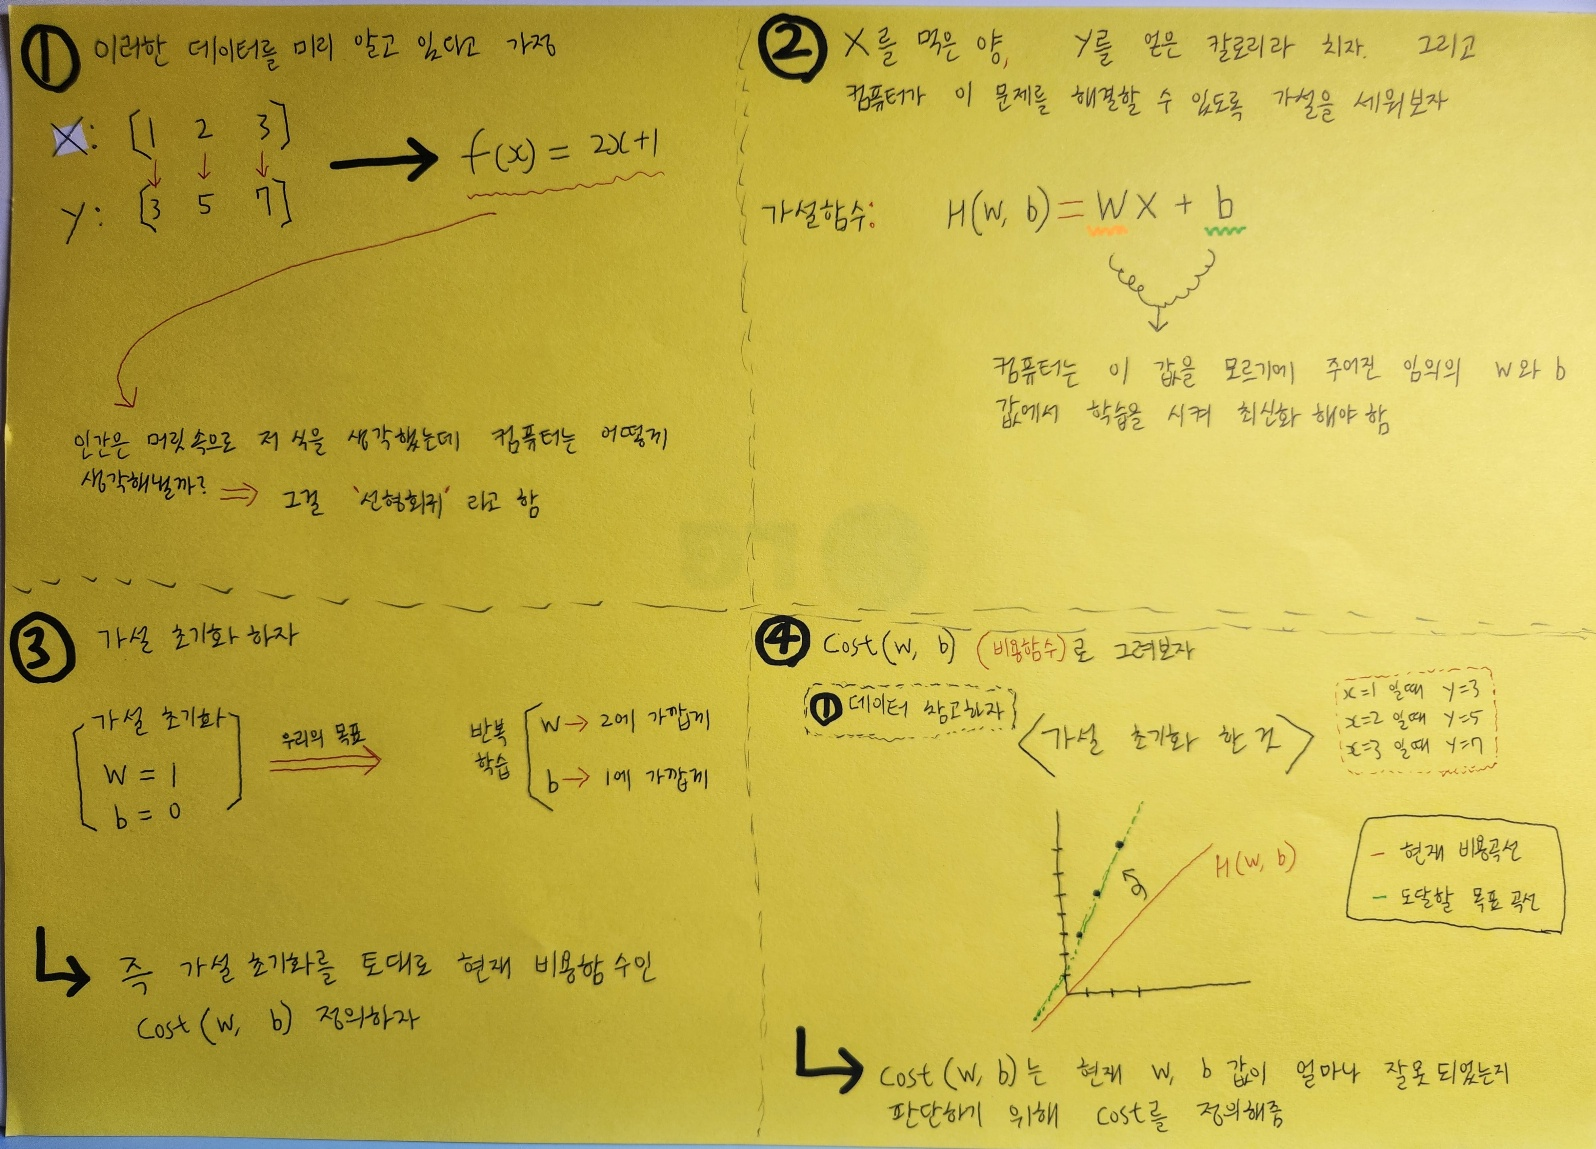 ① 이러한 데이터를 미리 알고 있다고 가정
X: [1 2 3]
y: [3 5 7]
f(x) = 2x+1
인간은 머릿속으로 저 식을 생각했는데 컴퓨터는 어떻게
생각해낼까? ⇒ 그걸 '선형회귀' 라고 함
② X를 먹은 양, y를 얻은 칼로리라 치자. 그리고
컴퓨터가 이 문제를 해결할 수 있도록 가설을 세워보자
가설함수: H(W, b) = WX + b
컴퓨터는 이 값을 모르기에 주어진 임의의 W와 b
값에서 학습을 시켜 최신화 해야 함
③ 가설 초기화 하자
가설 초기화
W = 1
b = 0
우리의 목표
반복
학습
W → 2에 가깝게
b → 1에 가깝게
즉 가설 초기화를 토대로 현재 비용함수인
Cost(W, b) 정의하자
④ Cost(W, b) (비용함수)로 그려보자
① 데이터 참고하자
<가설 초기화 한 것>
x=1 일때 y=3
x=2 일때 y=5
x=3 일때 y=7
H(W, b)
- 현재 비용곡선
- 도달할 목표 곡선
Cost(W, b)는 현재 W, b 값이 얼마나 잘못 되었는지
판단하기 위해 Cost를 정의해줌